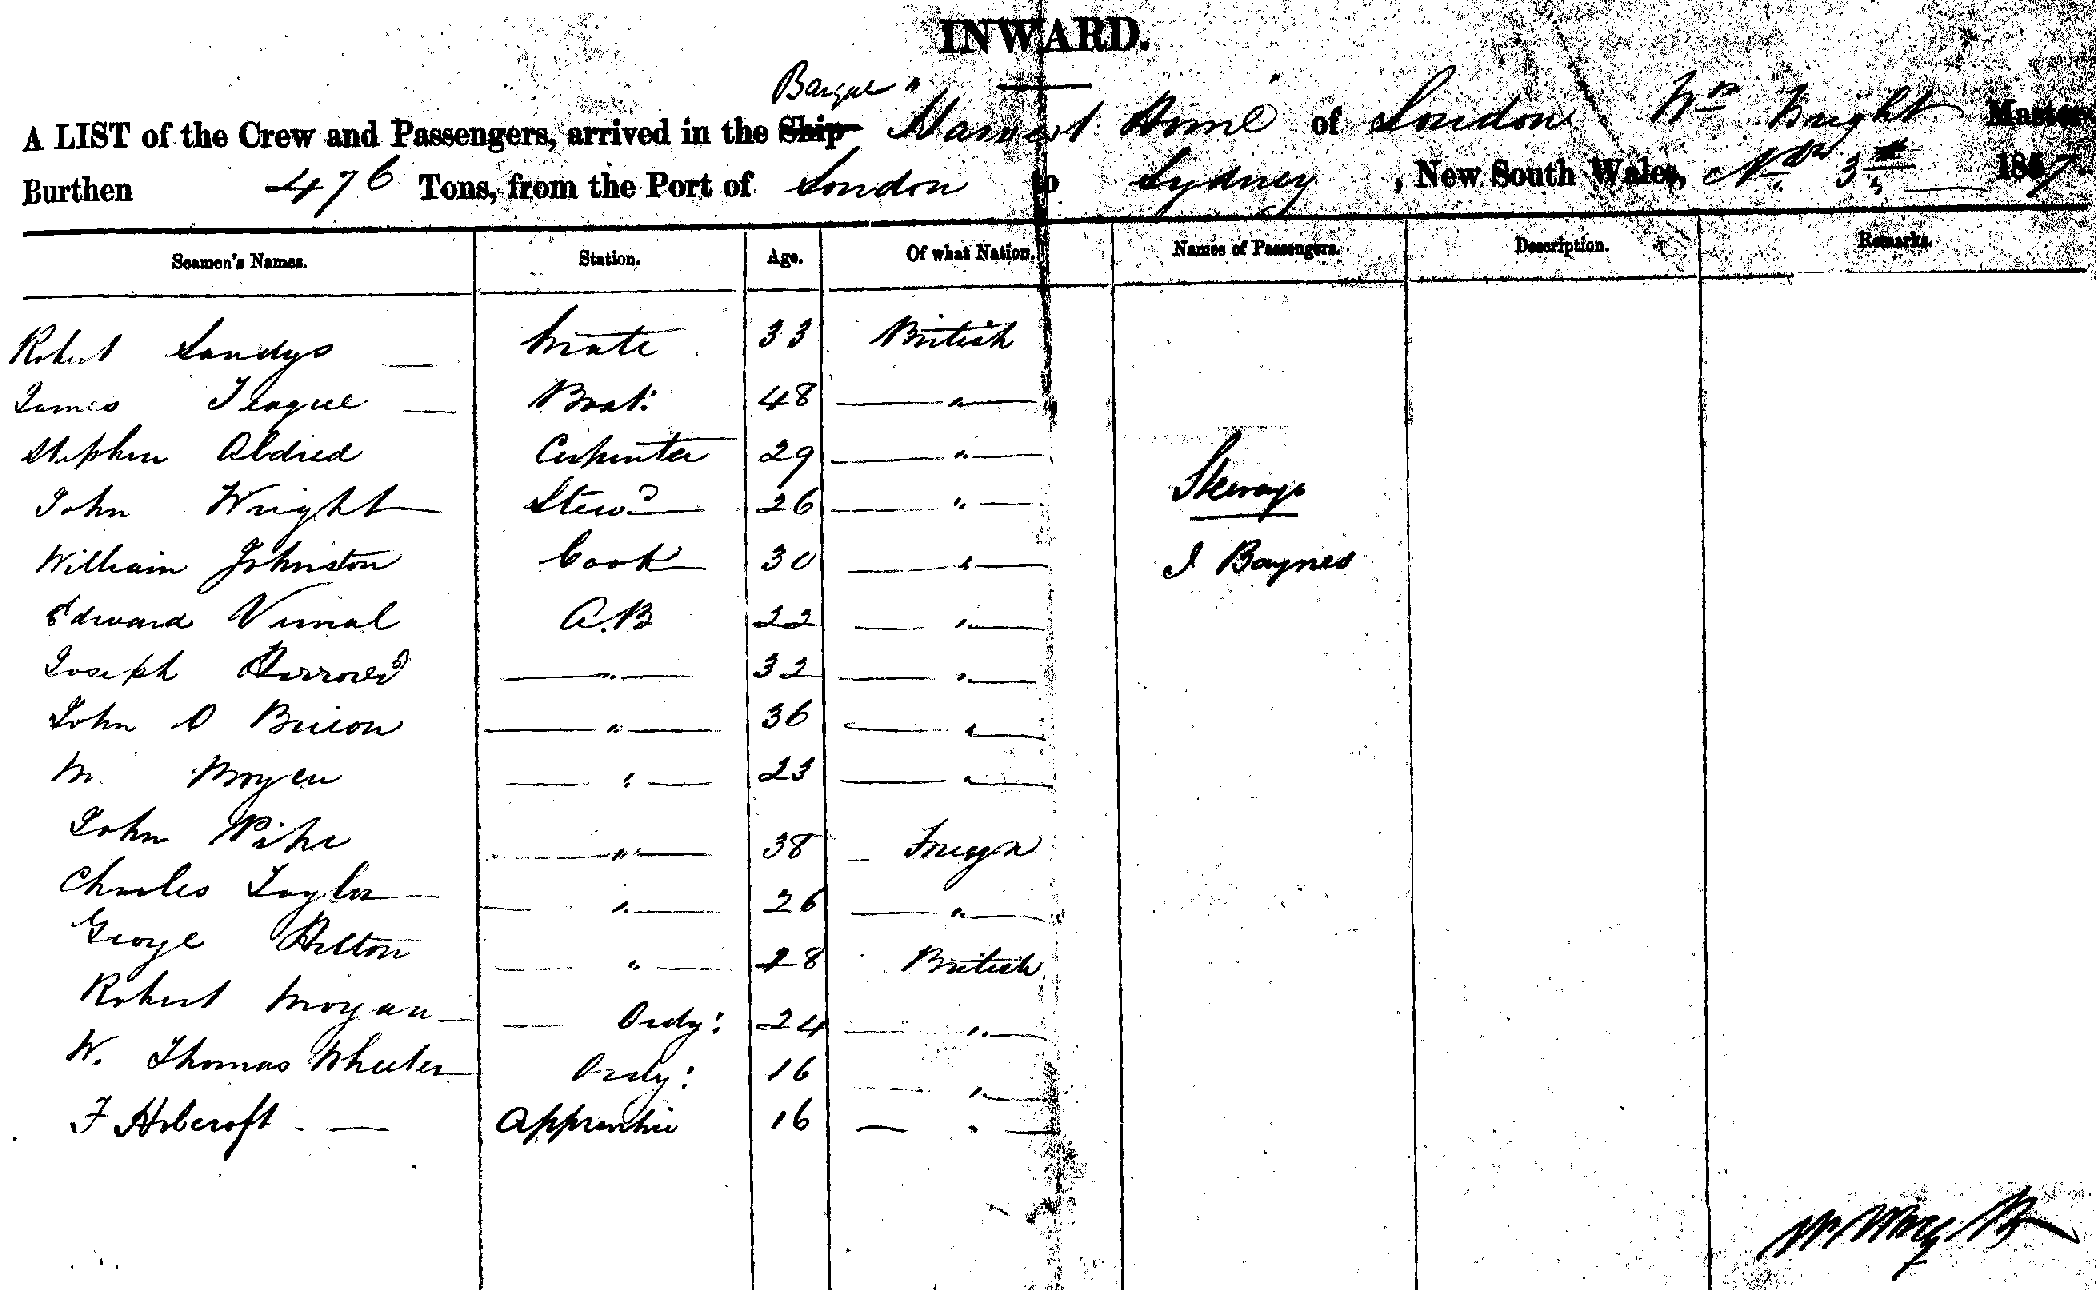 INWARD.
Barque "
A LIST of the Crew and Passengers, arrived in the Ship Harvest Home" of London Wm Wright Master,
Burthen 476 Tons, from the Port of London to Sydney, New South Wales, 3rd 1857.
Seamen's Names. Station. Age. Of what Nation. Names of Passengers. Description. Remarks.
Robert Sandys — Mate 33 British
James Teague — Boats: 48 — " —
Stephen Aldred Carpenter 29 — " —
John Wright Stewd 26 — " —
Steerage
William Johnston Cook 30 — " — J Baynes
Edward 22 — " —
A.B
Joseph — " — 32 — " —
John O — " — 36 — " —
M. — " — 23 — " —
John Pike — " — 38 — Foreign
Charles Taylor — " — 26 — " —
George Hilton — " — 28 British
Robert Morgan — Ordy: 24 — " —
W. Thomas Wheeler Ordy: 16 — " —
F Holcroft — Apprentice 16 — " —